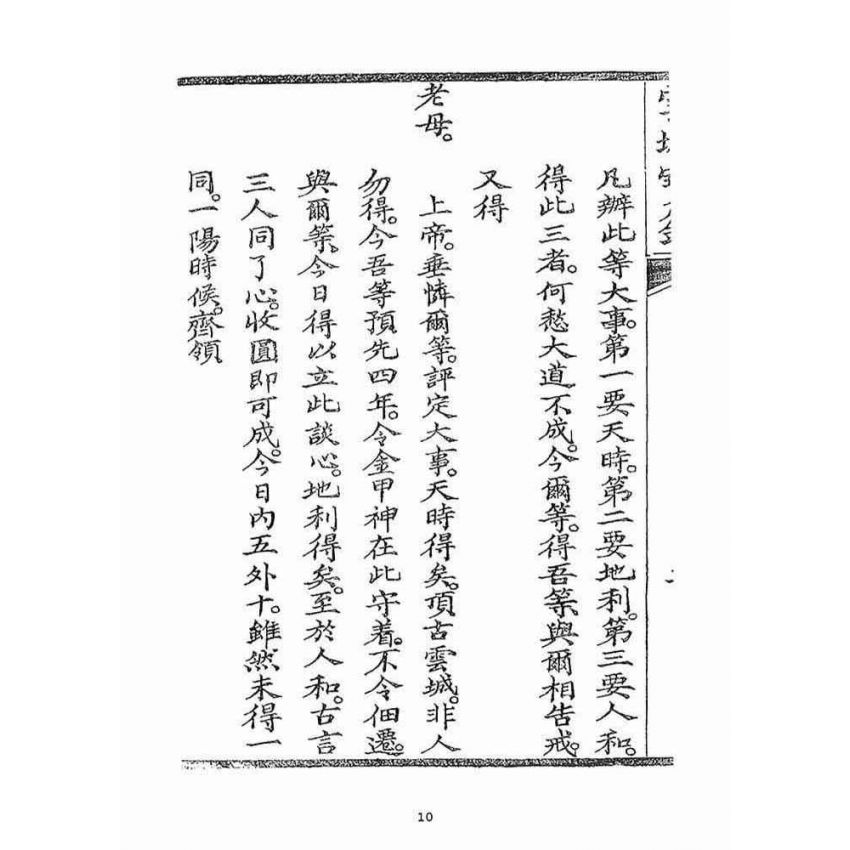 凡辦此等大事。第一要天時。第二要地利。第三要人和。
得此三者。何愁大道不成。今爾等。得吾等。與爾相告戒。
又得
老母。
上帝。垂憐爾等。評定大事。天時得矣。頂古雲城。非人
勿得。今吾等預先四年。令金甲神在此守着。不令佃遷。
與爾等。今日得以立此談心。地利得矣。至於人和。古言
三人同了心。收圓即可成。今日內五外十。雖然未得一
同。一陽時候。齊領
10